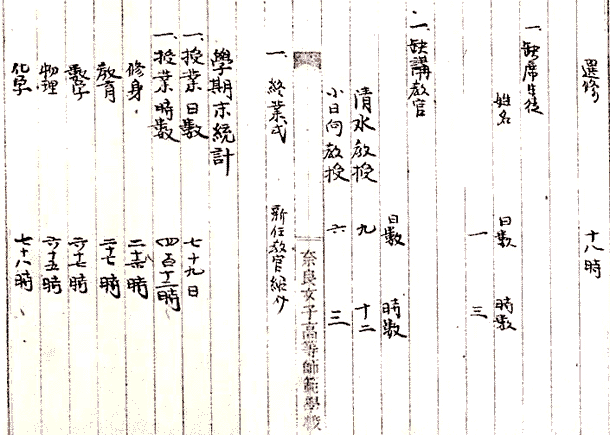 選修 十八時
一、缺席生徒
姓名 日数 時数
一 三
一、缺講教官
日数 時数
清水教授 九 十二
小日向教授 六 三
奈良女子高等師範學校
一、終業式 新任教官紹介
學期末統計
一、授業日数 七十九日
一、授業時数 四百十二時
修身 二十六時
教育 二十七時
数学 六十七時
物理 六十五時
化学 七十八時